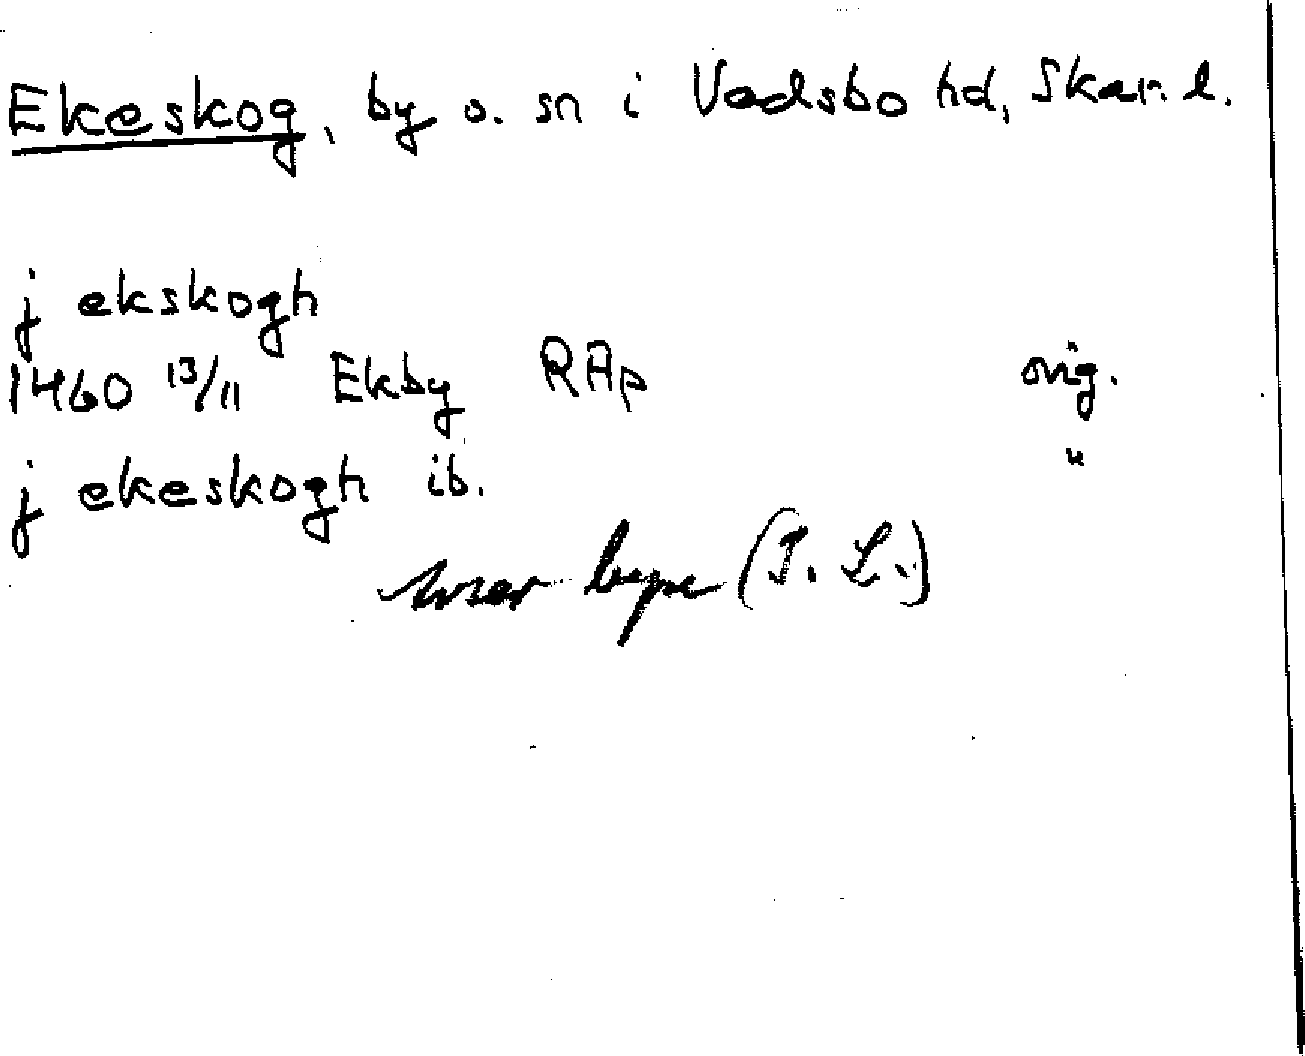 Ekeskog, by o. sn i Vadsbo hd, Skar. l.
j ekskogh
1460 13/11 Ekby RAp orig.
j ekeskogh ib. "
avser byn (I. L.)